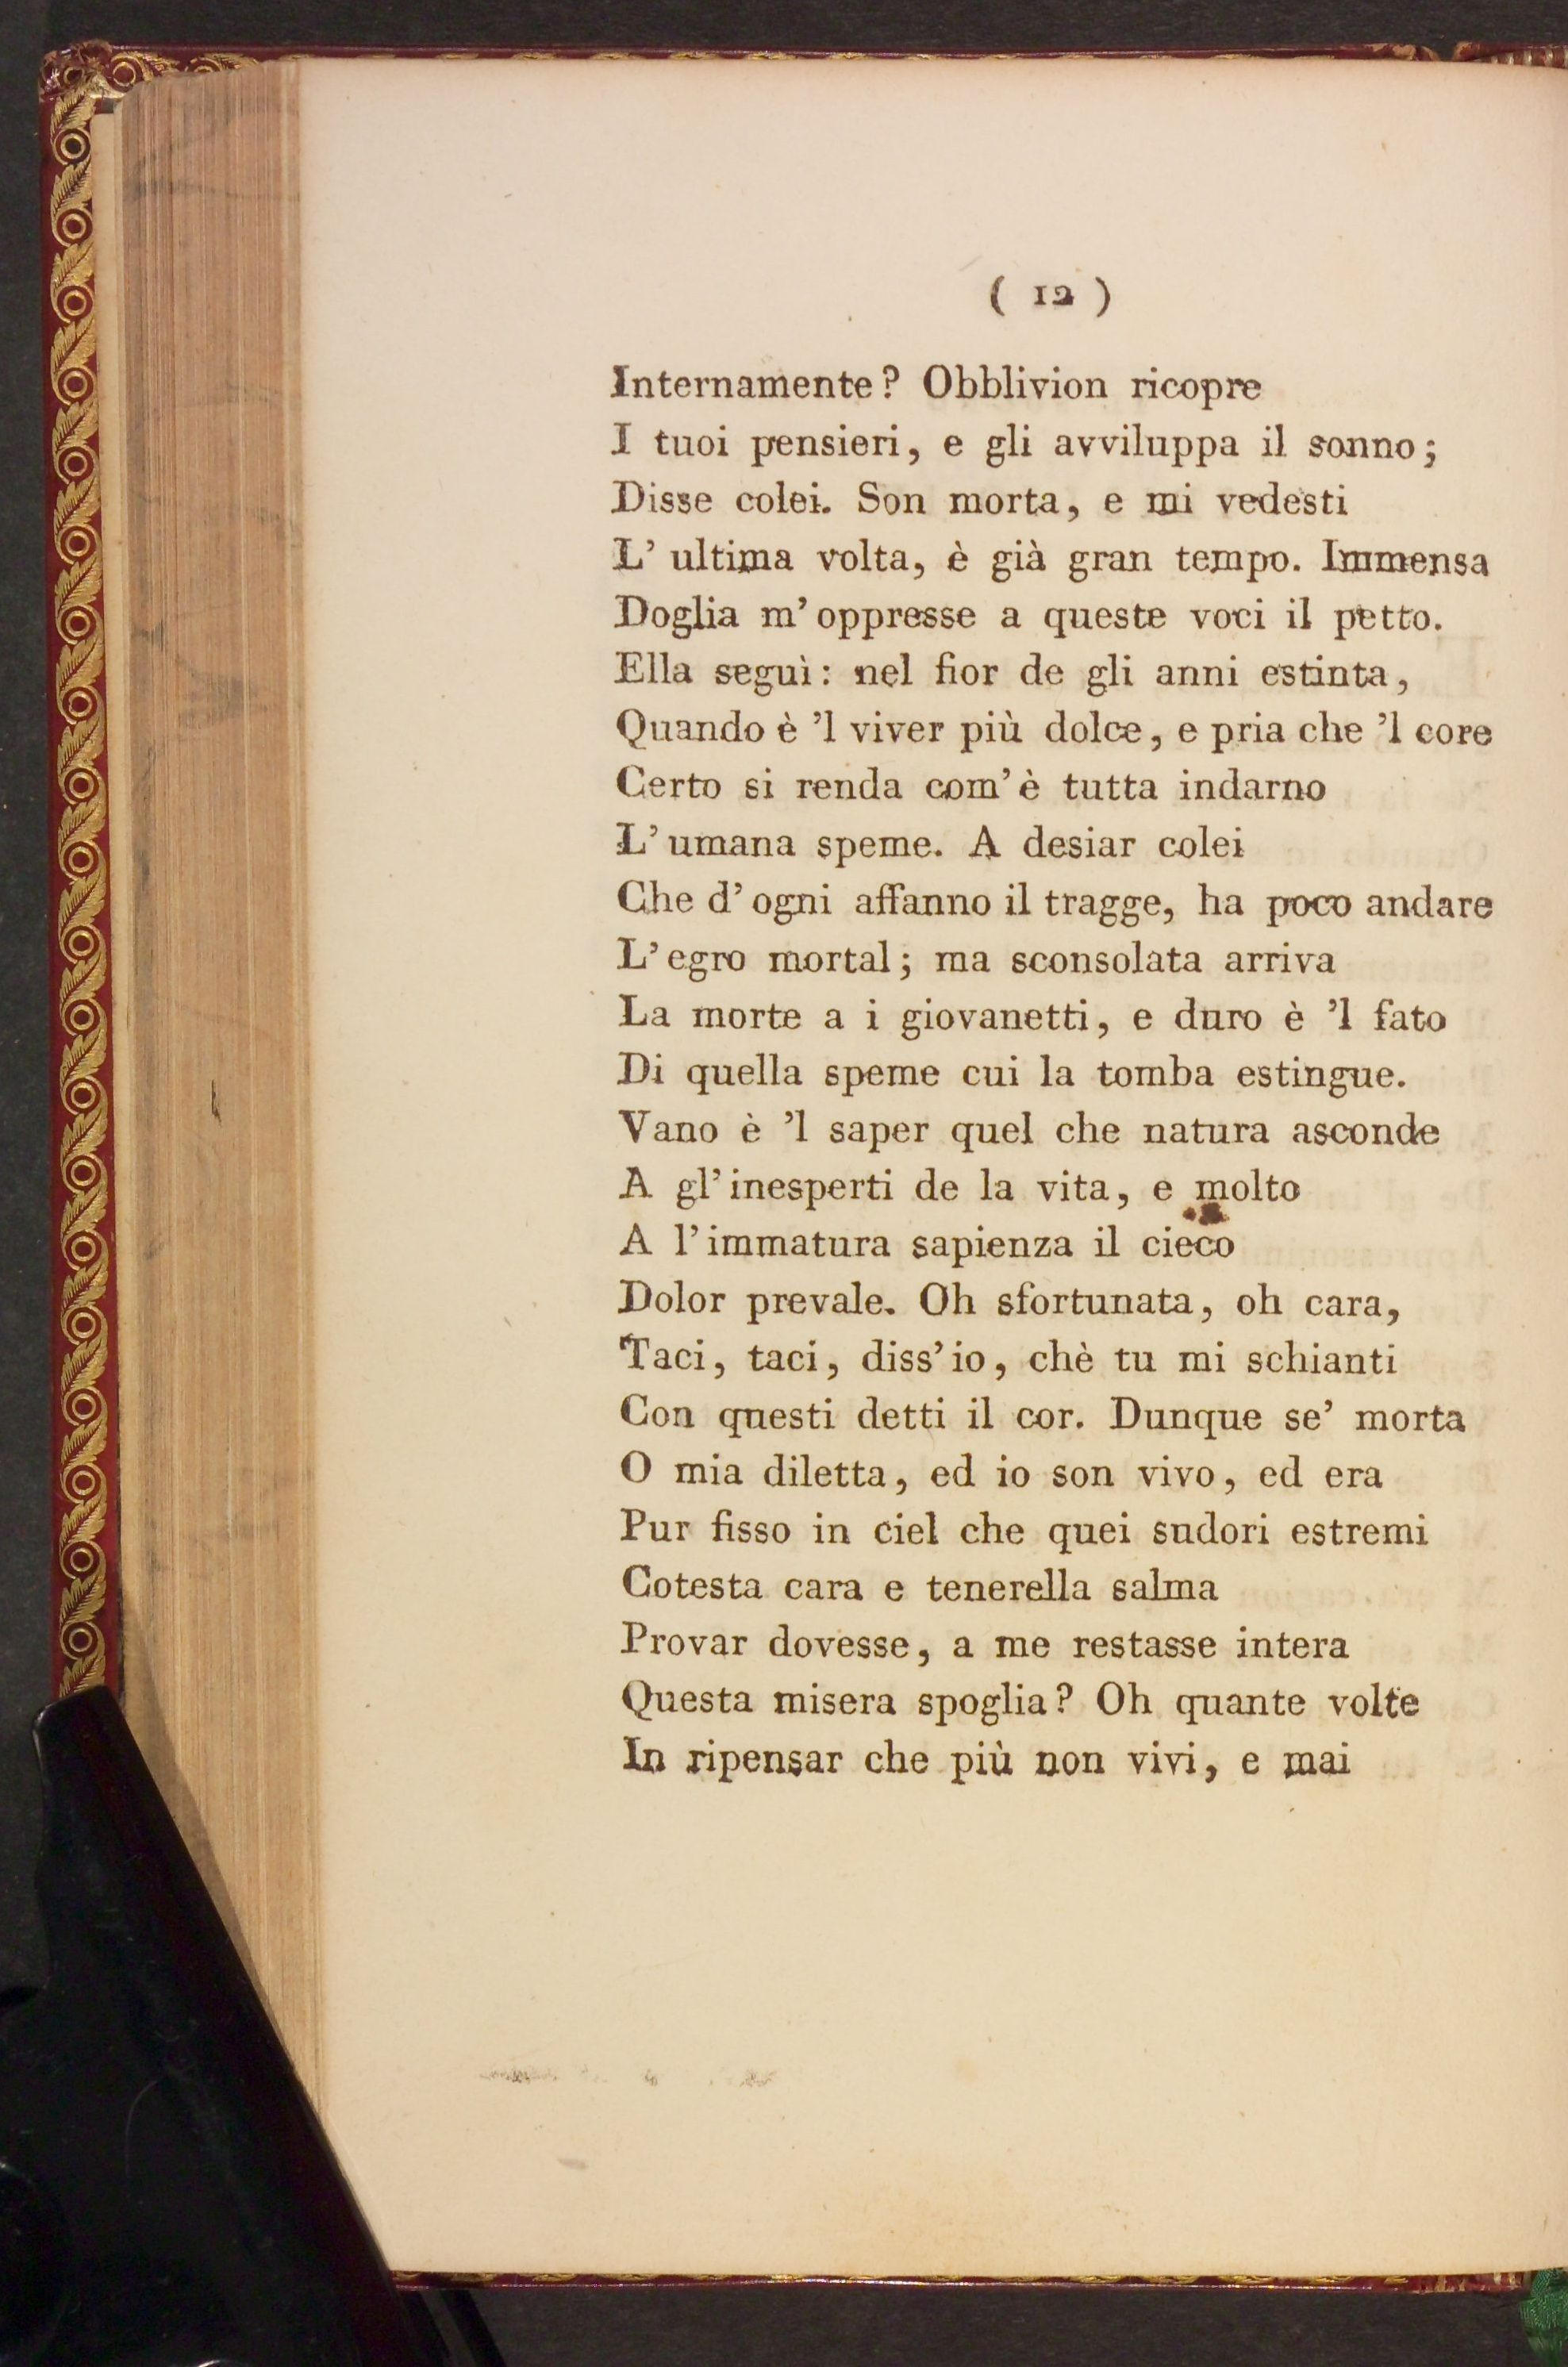 ( 12 )
Internamente? Obblivion ricopre
I tuoi pensieri, e gli avviluppa il sonno;
Disse colei. Son morta, e mi vedesti
L' ultima volta, è già gran tempo. Immensa
Doglia m' oppresse a queste voci il petto.
Ella seguì: nel fior de gli anni estinta,
Quando è 'l viver più dolce, e pria che 'l core
Certo si renda com' è tutta indarno
L' umana speme. A desiar colei
Che d' ogni affanno il tragge, ha poco andare
L' egro mortal; ma sconsolata arriva
La morte a i giovanetti, e duro è 'l fato
Di quella speme cui la tomba estingue.
Vano è 'l saper quel che natura asconde
A gl' inesperti de la vita, e molto
A l' immatura sapienza il cieco
Dolor prevale. Oh sfortunata, oh cara,
Taci, taci, diss' io, chè tu mi schianti
Con questi detti il cor. Dunque se' morta
O mia diletta, ed io son vivo, ed era
Pur fisso in ciel che quei sudori estremi
Cotesta cara e tenerella salma
Provar dovesse, a me restasse intera
Questa misera spoglia? Oh quante volte
In ripensar che più non vivi, e mai